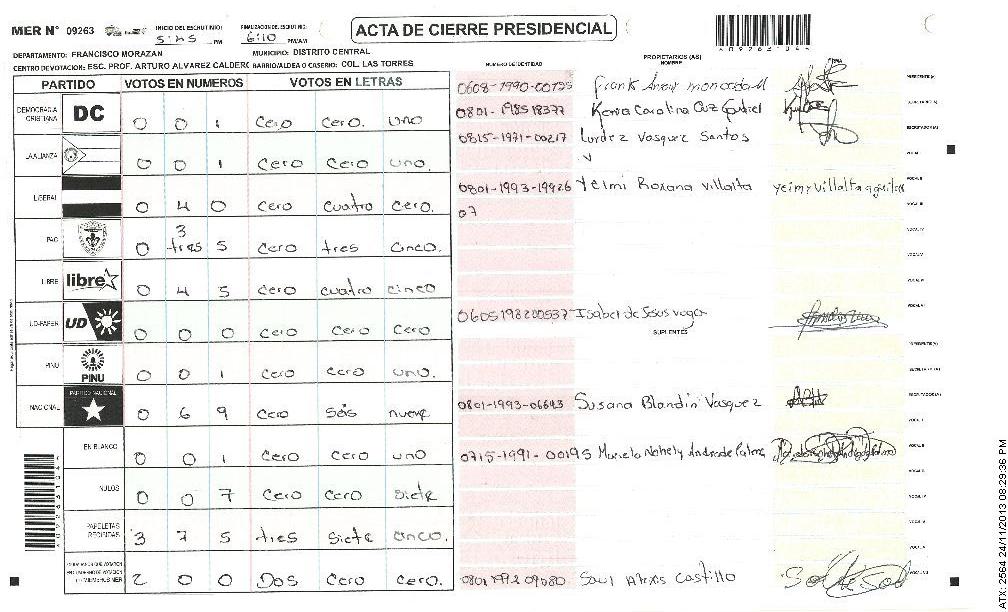 MER N° 09263
INICIO DEL ESCRUTINIO: 5:45 PM
FINALIZACION DEL ESCRUTINIO: 6:10 PM/AM
ACTA DE CIERRE PRESIDENCIAL
DEPARTAMENTO: FRANCISCO MORAZAN
MUNICIPIO: DISTRITO CENTRAL
CENTRO DE VOTACION: ESC. PROF. ARTURO ALVAREZ CALDERO BARRIO/ALDEA O CASERIO: COL. LAS TORRES
PARTIDO VOTOS EN NUMEROS VOTOS EN LETRAS
NUMERO DE IDENTIDAD
PROPIETARIOS (AS)
NOMBRE
FIRMA
DEMOCRACIA CRISTIANA DC 0 0 1 Cero Cero. uno
LA ALIANZA 0 0 1 Cero Cero uno.
LIBERAL 0 4 0 Cero cuatro Cero.
PAC 0 3 tres 5 Cero tres cinco.
LIBRE libre 0 4 5 Cero cuatro cinco
UD-FAPER UD 0 0 0 Cero Cero Cero
PINU PINU 0 0 1 Cero Cero uno.
NACIONAL PARTIDO NACIONAL 0 6 9 Cero seis nueve
EN BLANCO 0 0 1 Cero Cero uno
NULOS 0 0 7 Cero Cero siete
PAPELETAS RECIBIDAS 3 7 5 tres siete cinco.
2 0 0 Dos Cero Cero.
0608-1990-00135 Frank
0801-1985 18377 Kenia Carolina Cruz
0815-1971-00217 Lurdez Vasquez Santos
0801-1993-19926 Yeimi Roxana Villalta
07
0605198200537 Isabel de Jesus vega
SUPLENTES
0801-1993-06693 Susana Blandin Vasquez
0715-1991-00195 Mariela Nohely Andrade Palma
0801 1992 09080 Saul Alexis Castillo
ATX: 2564 24/11/2013 08:29:36 PM